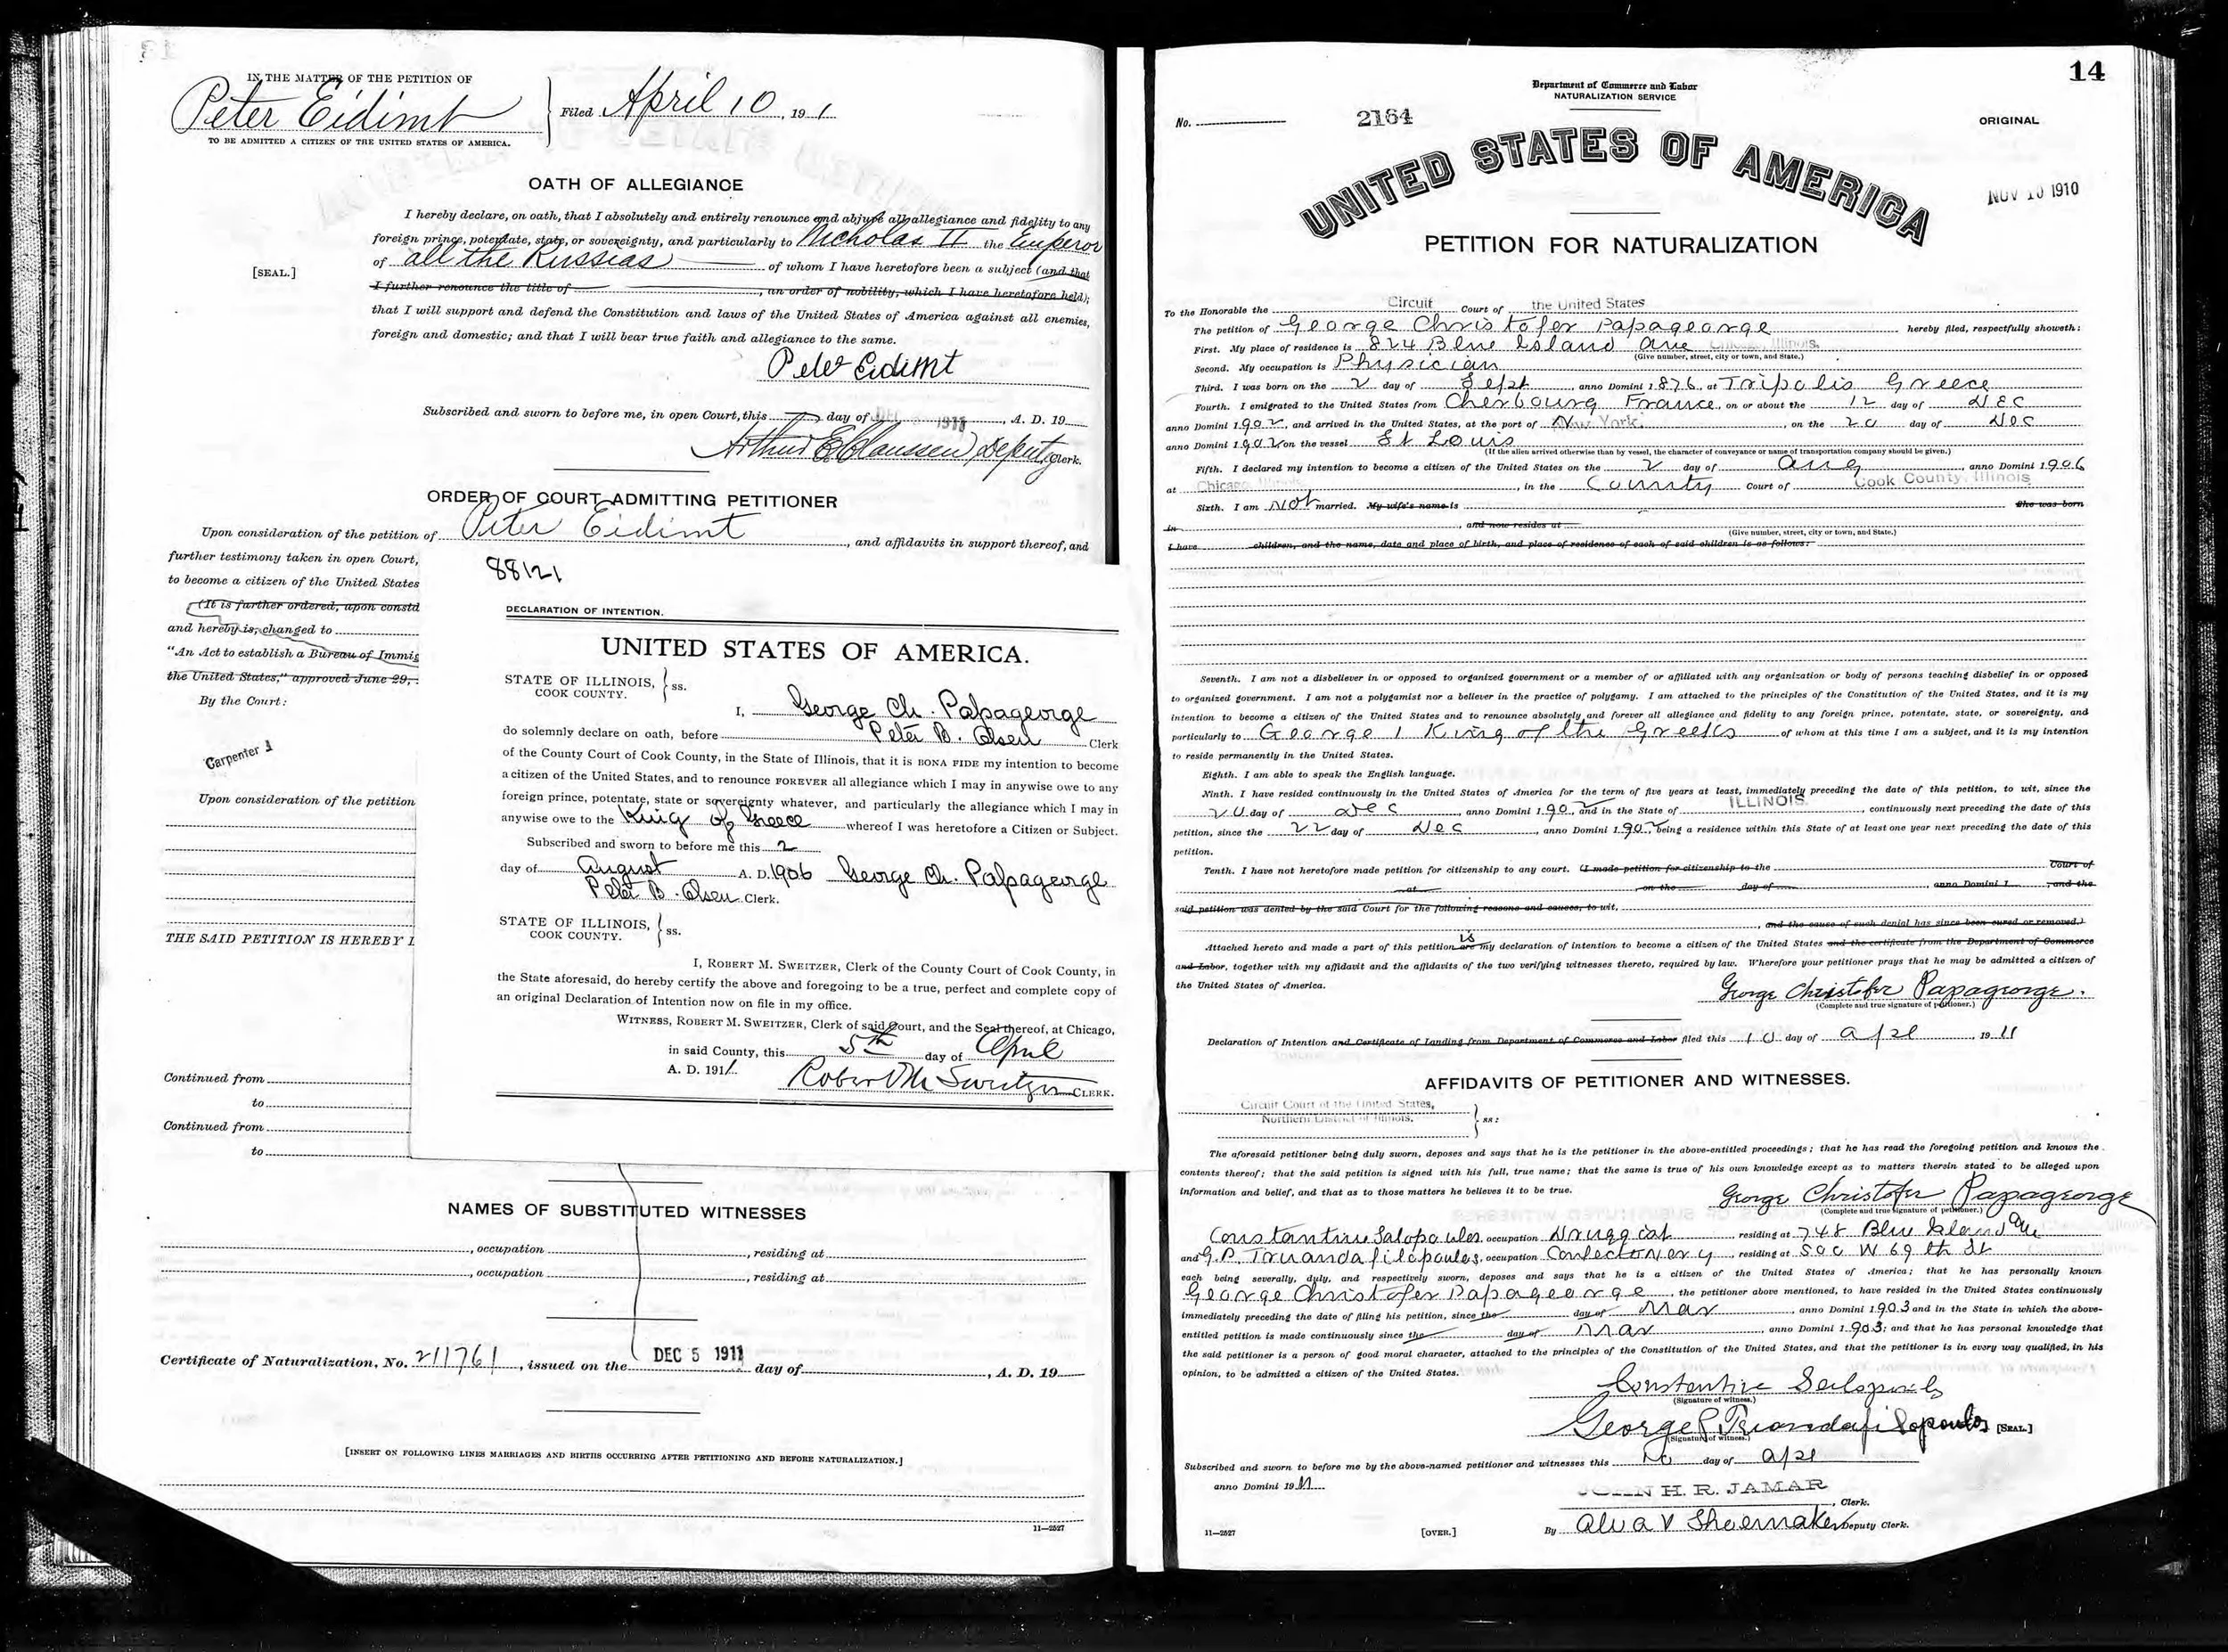 IN THE MATTER OF THE PETITION OF
Peter Eidimt
Filed April 10, 191
TO BE ADMITTED A CITIZEN OF THE UNITED STATES OF AMERICA.
OATH OF ALLEGIANCE
I hereby declare, on oath, that I absolutely and entirely renounce and abjure all allegiance and fidelity to any
foreign prince, potentate, state, or sovereignty, and particularly to Nicholas II the Emperor
of all the Russias of whom I have heretofore been a subject (and that
[SEAL.]
I further renounce the title of , an order of nobility, which I have heretofore held);
that I will support and defend the Constitution and laws of the United States of America against all enemies,
foreign and domestic; and that I will bear true faith and allegiance to the same.
Peter Eidimt
Subscribed and sworn to before me, in open Court, this day of DEC 1911, A. D. 19
Arthur E Claussen, Deputy Clerk.
ORDER OF COURT ADMITTING PETITIONER
Upon consideration of the petition of Peter Eidimt, and affidavits in support thereof, and
further testimony taken in open Court,
to become a citizen of the United States
(It is further ordered, upon consid
and hereby is, changed to
"An Act to establish a Bureau of Immig
the United States," approved June 29,
By the Court:
Carpenter J
Upon consideration of the petition
THE SAID PETITION IS HEREBY
Continued from
to
Continued from
to
88121
DECLARATION OF INTENTION.
UNITED STATES OF AMERICA.
STATE OF ILLINOIS,
COOK COUNTY. ss.
I, George Ch. Papageorge
do solemnly declare on oath, before Peter B. Olsen Clerk
of the County Court of Cook County, in the State of Illinois, that it is BONA FIDE my intention to become
a citizen of the United States, and to renounce FOREVER all allegiance which I may in anywise owe to any
foreign prince, potentate, state or sovereignty whatever, and particularly the allegiance which I may in
anywise owe to the King of Greece whereof I was heretofore a Citizen or Subject.
Subscribed and sworn to before me this 2
day of August A. D. 1906 George Ch. Papageorge
Peter B. Olsen Clerk.
STATE OF ILLINOIS,
COOK COUNTY. ss.
I, ROBERT M. SWEITZER, Clerk of the County Court of Cook County, in
the State aforesaid, do hereby certify the above and foregoing to be a true, perfect and complete copy of
an original Declaration of Intention now on file in my office.
WITNESS, ROBERT M. SWEITZER, Clerk of said Court, and the Seal thereof, at Chicago,
in said County, this 5th day of April
A. D. 1911. Robert M Sweitzer CLERK.
NAMES OF SUBSTITUTED WITNESSES
, occupation , residing at
, occupation , residing at
Certificate of Naturalization, No. 211761, issued on the DEC 5 1911 day of , A. D. 19
[INSERT ON FOLLOWING LINES MARRIAGES AND BIRTHS OCCURRING AFTER PETITIONING AND BEFORE NATURALIZATION.]
11—2527
14
Department of Commerce and Labor
NATURALIZATION SERVICE
No. 2164
ORIGINAL
UNITED STATES OF AMERICA
NOV 10 1910
PETITION FOR NATURALIZATION
To the Honorable the Circuit Court of the United States
The petition of George Christofer Papageorge hereby filed, respectfully showeth:
First. My place of residence is 824 Blue Island Ave Chicago, Illinois.
(Give number, street, city or town, and State.)
Second. My occupation is Physician
Third. I was born on the 2 day of Sept anno Domini 1876, at Tripolis Greece
Fourth. I emigrated to the United States from Cherbourg France, on or about the 12 day of Dec
anno Domini 1902, and arrived in the United States, at the port of New York, on the 20 day of Dec
anno Domini 1902 on the vessel St Louis
(If the alien arrived otherwise than by vessel, the character of conveyance or name of transportation company should be given.)
Fifth. I declared my intention to become a citizen of the United States on the 2 day of Aug, anno Domini 1906
at Chicago, Illinois, in the County Court of Cook County, Illinois
Sixth. I am Not married. My wife's name is She was born
in , and now resides at
(Give number, street, city or town, and State.)
I have children, and the name, date and place of birth, and place of residence of each of said children is as follows:
Seventh. I am not a disbeliever in or opposed to organized government or a member of or affiliated with any organization or body of persons teaching disbelief in or opposed
to organized government. I am not a polygamist nor a believer in the practice of polygamy. I am attached to the principles of the Constitution of the United States, and it is my
intention to become a citizen of the United States and to renounce absolutely and forever all allegiance and fidelity to any foreign prince, potentate, state, or sovereignty, and
particularly to George I King of the Greeks of whom at this time I am a subject, and it is my intention
to reside permanently in the United States.
Eighth. I am able to speak the English language.
Ninth. I have resided continuously in the United States of America for the term of five years at least, immediately preceding the date of this petition, to wit, since the
20 day of Dec, anno Domini 1902, and in the State of ILLINOIS, continuously next preceding the date of this
petition, since the 22 day of Dec, anno Domini 1902 being a residence within this State of at least one year next preceding the date of this
petition.
Tenth. I have not heretofore made petition for citizenship to any court. (I made petition for citizenship to the Court of
at on the day of , anno Domini 1 , and the
said petition was denied by the said Court for the following reasons and causes, to wit,
, and the cause of such denial has since been cured or removed.)
Attached hereto and made a part of this petition are is my declaration of intention to become a citizen of the United States and the certificate from the Department of Commerce
and Labor, together with my affidavit and the affidavits of the two verifying witnesses thereto, required by law. Wherefore your petitioner prays that he may be admitted a citizen of
the United States of America.
George Christofer Papageorge.
(Complete and true signature of petitioner.)
Declaration of Intention and Certificate of Landing from Department of Commerce and Labor filed this 10 day of Apl, 1911
AFFIDAVITS OF PETITIONER AND WITNESSES.
Circuit Court of the United States,
Northern District of Illinois. ss:
The aforesaid petitioner being duly sworn, deposes and says that he is the petitioner in the above-entitled proceedings; that he has read the foregoing petition and knows the
contents thereof; that the said petition is signed with his full, true name; that the same is true of his own knowledge except as to matters therein stated to be alleged upon
information and belief, and that as to those matters he believes it to be true.
George Christofer Papageorge
(Complete and true signature of petitioner.)
Constantine Salopoulos, occupation Druggist residing at 748 Blue Island Ave
and G.P. Truandafilopoulos, occupation Confectionery, residing at 500 W 69th St
each being severally, duly, and respectively sworn, deposes and says that he is a citizen of the United States of America; that he has personally known
George Christofer Papageorge, the petitioner above mentioned, to have resided in the United States continuously
immediately preceding the date of filing his petition, since the day of Mar, anno Domini 1903 and in the State in which the above-
entitled petition is made continuously since the day of Mar, anno Domini 1903; and that he has personal knowledge that
the said petitioner is a person of good moral character, attached to the principles of the Constitution of the United States, and that the petitioner is in every way qualified, in his
opinion, to be admitted a citizen of the United States.
Constantine
(Signature of witness.)
George P Triandafilopoulos [SEAL.]
(Signature of witness.)
Subscribed and sworn to before me by the above-named petitioner and witnesses this 10 day of Apl
anno Domini 1911
JOHN H. R. JAMAR, Clerk.
11—2527
[OVER.]
By Alva V Shoemaker Deputy Clerk.